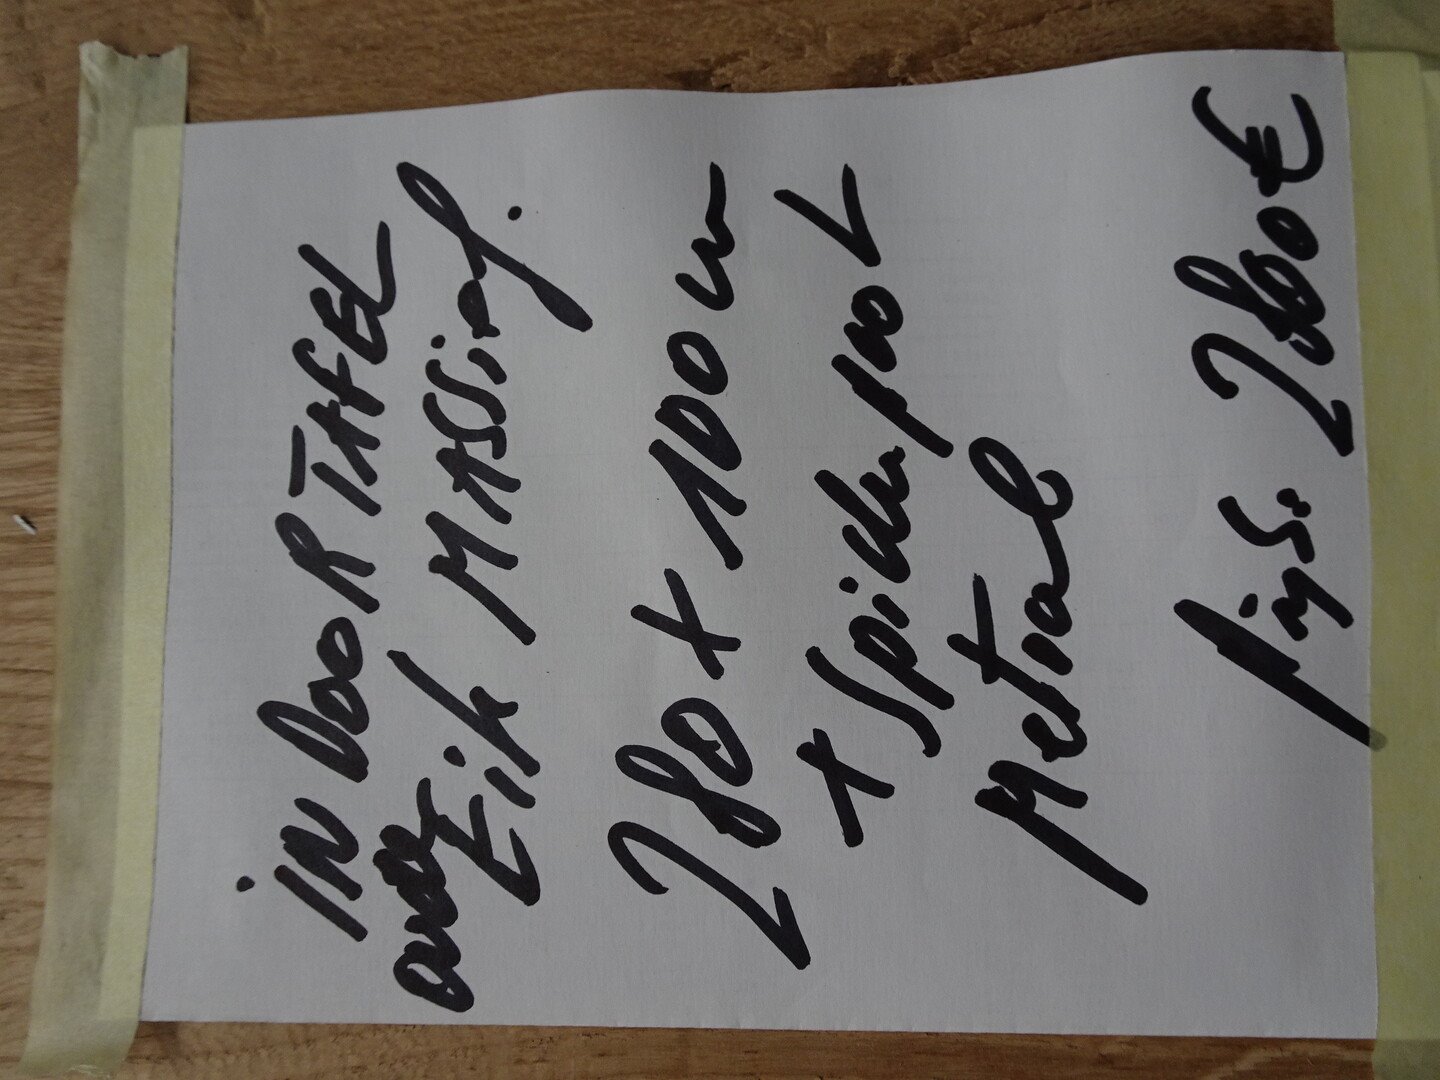 iN DooR TAFEL
Eik MASSief.
280 + 100 cm
+ Spiderpoot
Metaal
prijs. 2800 €